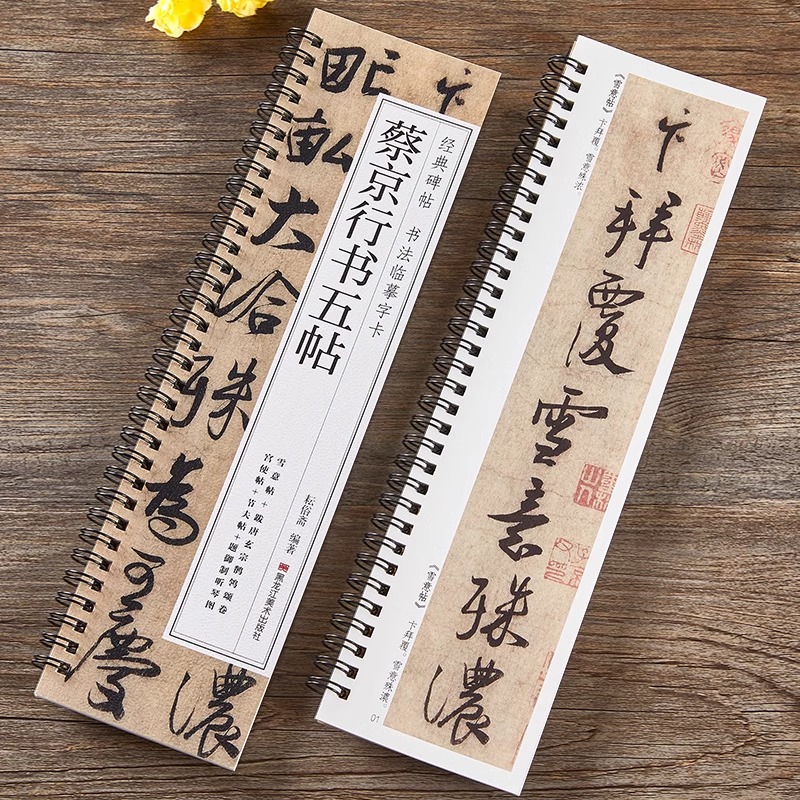 卞
濃
甿畝大洽殊為可慶
经典碑帖 书法临摹字卡
蔡京行书五帖
雪意帖+跋唐玄宗鹡鸰颂卷
宫使帖+节夫帖+题御制听琴图
耘俗斋 编著
黑龙江美术出版社
《雪意帖》 卞拜覆。雪意殊浓。
卞拜覆雪意殊濃
《雪意帖》 卞拜覆。雪意殊濃。
01